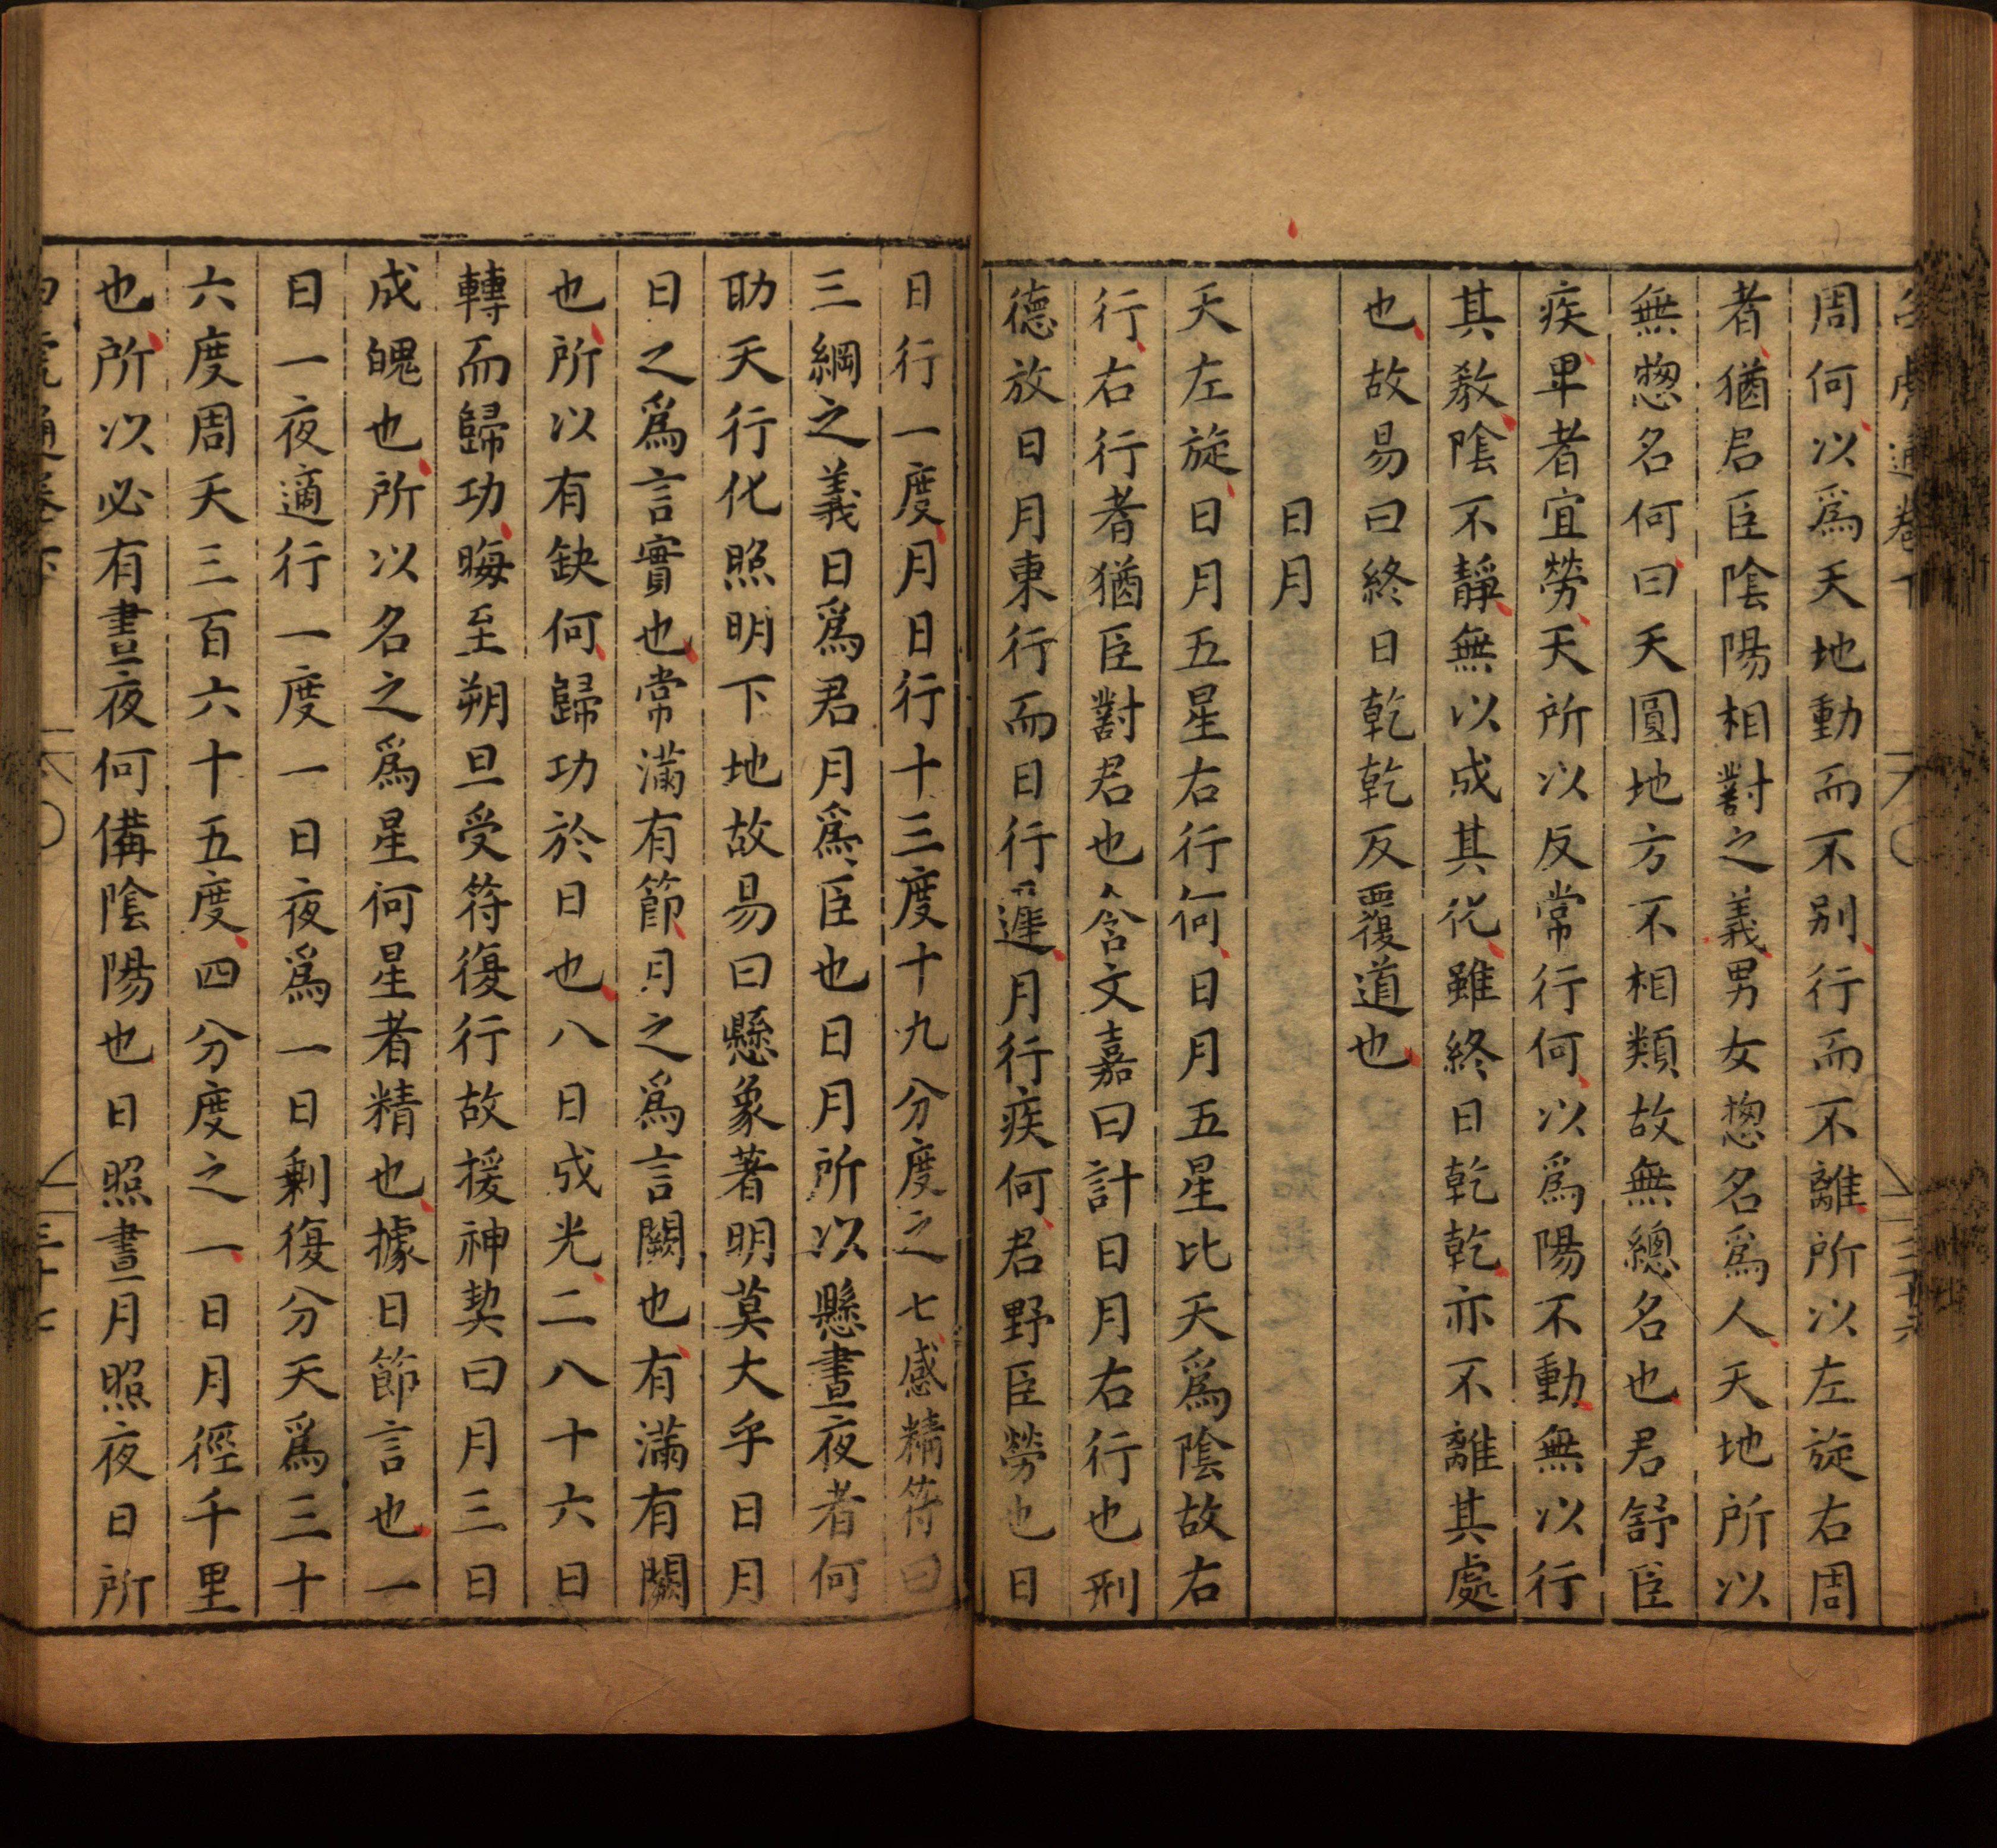 白虎通卷下
三十六
周何以爲天地動而不别行而不離所以左旋右周
者猶君臣陰陽相對之義男女惣名爲人天地所以
無惣名何曰天圓地方不相類故無總名也君舒臣
疾卑者宜勞天所以反常行何以爲陽不動無以行
其教陰不靜無以成其化雖終日乾乾亦不離其處
也故易曰終日乾乾反覆道也
日月
天左旋日月五星右行何日月五星比天爲陰故右
行右行者猶臣對君也含文嘉曰計日月右行也刑
德放日月東行而日行遲月行疾何君野臣勞也日
日行一度月日行十三度十九分度之七感精符曰
三綱之義日爲君月爲臣也日月所以懸晝夜者何
助天行化照明下地故易曰懸象著明莫大乎日月
日之爲言實也常滿有節月之爲言闕也有滿有闕
也所以有缺何歸功於日也八日成光二八十六日
轉而歸功晦至朔旦受符復行故援神契曰月三日
成魄也所以名之爲星何星者精也據日節言也一
日一夜適行一度一日夜爲一日剩復分天爲三十
六度周天三百六十五度四分度之一日月徑千里
也所以必有晝夜何備陰陽也日照晝月照夜日所
白虎通卷下
三十七